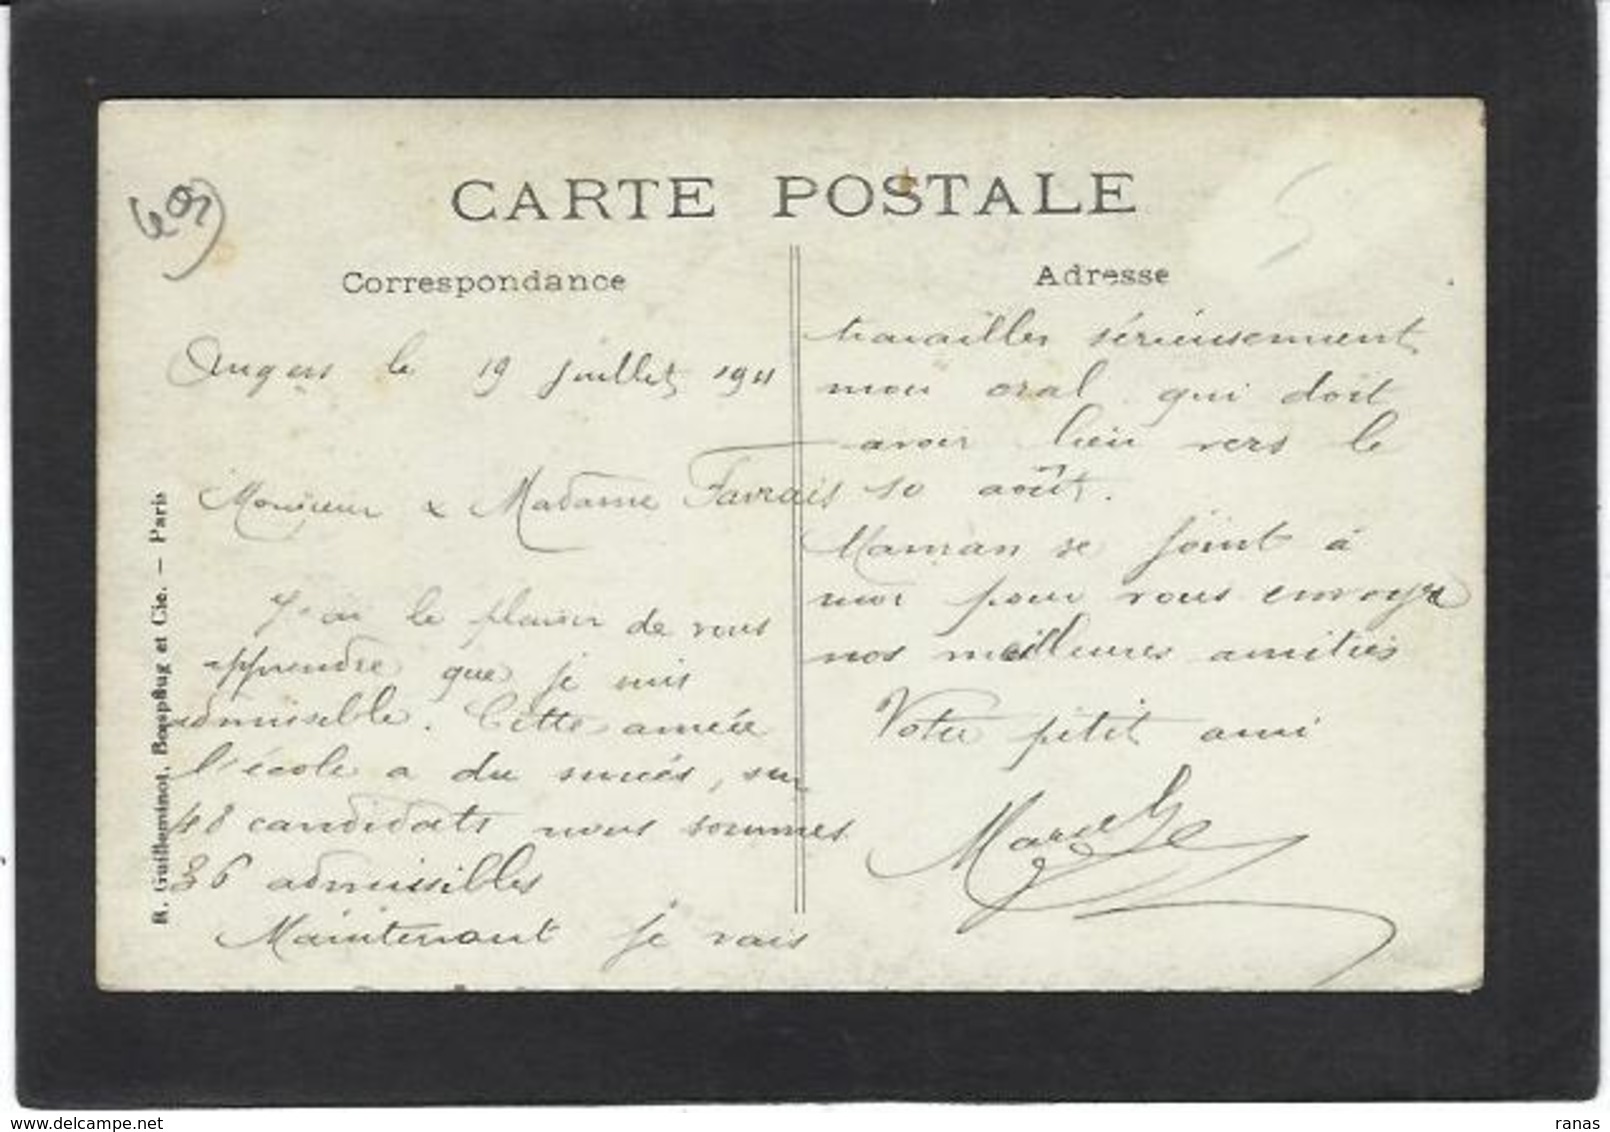 CARTE POSTALE
Correspondance
Angers le 19 juillet 1911
Monsieur & Madame Favrais
J'ai le plaisir de vous
apprendre que je suis
admissible. Cette année
l'école a du succés, sur
48 candidats nous sommes
36 admissibles
Maintenant je vais
Adresse
travailler sérieusement
mon oral qui doit
avoir lieu vers le
10 août.
Maman se joint à
moi pour vous envoyer
nos meilleures amitiés
Votre petit ami
Marcel
R. Guilleminot, Bœspflug et Cie. — Paris
delcampe.net
ranas